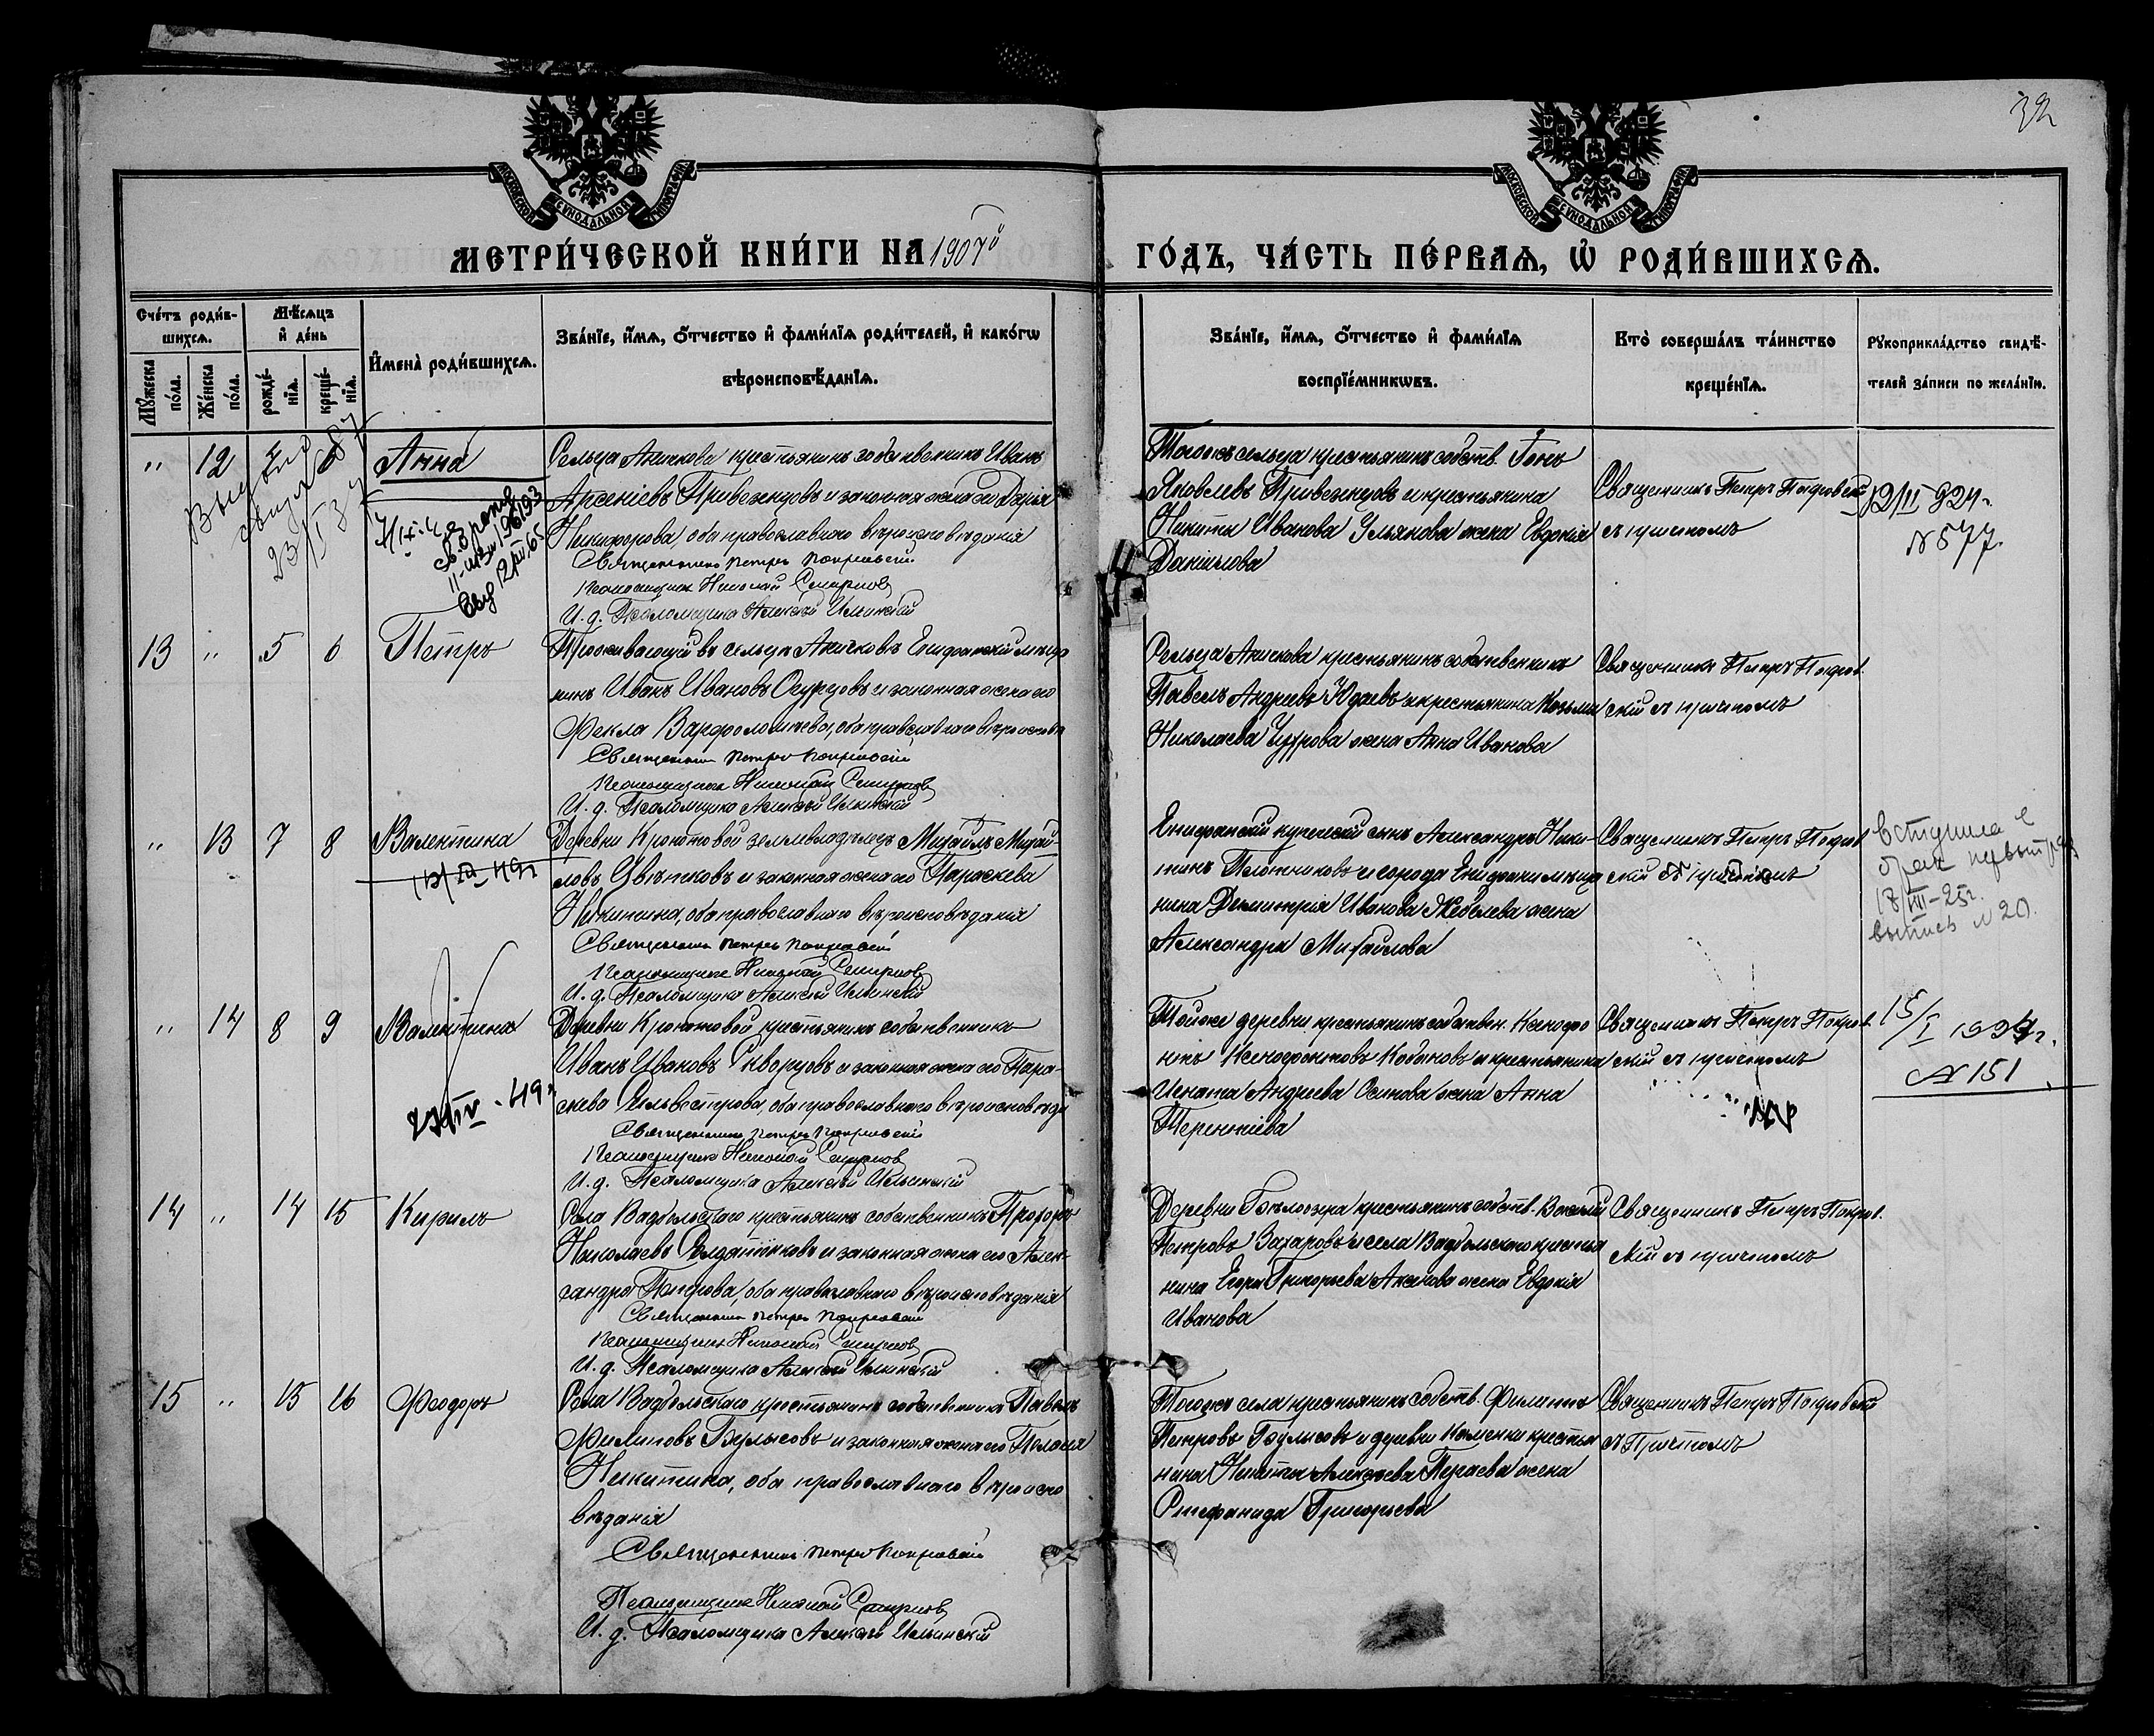 32
МОСКОВСКОЙ СѴНОДАЛЬНОЙ ТИПОГРАФІИ
МОСКОВСКОЙ СѴНОДАЛЬНОЙ ТИПОГРАФІИ
МЕТРИ́ЧЕСКОЙ КНИ́ГИ НА 1907й ГО́ДЪ, ЧА́СТЬ ПЕ́РВАѦ, Ѡ҆ РОДИ́ВШИХСѦ.
Сче́тъ роди́вшихсѧ.
Мꙋ́жеска по́ла.
Же́нска по́ла.
Мѣ́сѧцъ и҆ де́нь
рожде́нїѧ.
креще́нїѧ.
И҆мена̀ роди́вшихсѧ.
Зва́нїе, и҆́мѧ, ѻ҆́тчество и҆ фами́лїѧ роди́телей, и҆ како́гѡ
вѣроисповѣ́данїѧ.
Зва́нїе, и҆́мѧ, ѻ҆́тчество и҆ фами́лїѧ
воспрїе́мникѡвъ.
Кто̀ соверша́лъ та́инство
креще́нїѧ.
Рꙋкоприкла́дство свидѣ́-
телей за́писи по жела́нїю.
" 12 Анна
Сельца Аничкова крестьянинъ собственникъ Иванъ
Арсеніевъ Привезенцовъ и законная жена его Дарія
Никифорова, оба православнаго вѣроисповѣданія
Священникъ Петръ Покровскій
Псаломщикъ Николай Смирновъ
И. д. Псаломщика Алексѣй Ильинскій
Тогоже сельца крестьянинъ собств.
Яковлевъ Привезенцовъ и крестьянина
Никиты Иванова Ульянова жена Евдокія
Даніилова
Священникъ Петръ Покровскій
съ причтомъ
12/II 924 г.
№ 577.
13 " 5 6 Петръ
Проживающій въ сельцѣ Аничковѣ Епифанскій мѣща
нинъ Иванъ Ивановъ Огурцовъ и законная жена его
Фекла Варфоломѣева, оба православнаго вѣроисповѣ
Священникъ Петръ Покровскій
Псаломщикъ Николай Смирновъ
И. д. Псаломщика Алексѣй Ильинскій
Сельца Аничкова крестьянинъ собственникъ
Павелъ Андреевъ Юдаевъ и крестьянина Козьмы
Николаева жена Анна Иванова
Священникъ Петръ Покров.
скій съ причтомъ
" 13 7 8 Валентина
Деревни Кропотовой землевладѣлецъ Михаилъ Михай-
ловъ Цвѣтковъ и законная жена его Параскева
Никитина, оба православнаго вѣроисповѣданія
Священникъ Петръ Покровскій
Псаломщикъ Николай Смирновъ
И. д. Псаломщика Алексѣй Ильинскій
Епифанскій купеческій сынъ Александръ Ники-
тинъ Плотниковъ и города Епифани мѣща
нина Димитрія Иванова жена
Александра Михайлова
Священникъ Петръ Покров
скій съ причтомъ
вступила в
брак первый раз
18/VIII-25г.
выпись № 20.
" 14 8 9 Валентина
Деревни Кропотовой крестьянинъ собственникъ
Иванъ Ивановъ Скворцовъ и законная жена его Пара-
скева Сильвестрова, оба православнаго вѣроисповѣда
Священникъ Петръ Покровскій
Псаломщикъ Николай Смирновъ
И. д. Псаломщика Алексѣй Ильинскій
Тойже деревни крестьянинъ собствен. Ксенофо
нтъ Ксенофонтовъ Кабановъ и крестьянина
Игната Андреева Осипова жена Анна
Терентіева
Священникъ Петръ Покров.
скій съ причтомъ
15/I
№ 151
14 " 14 15 Кирилъ
Села Вадбольскаго крестьянинъ собственникъ Прохоръ
Николаевъ Солдатенковъ и законная жена его Алек-
сандра Петрова, оба православнаго вѣроисповѣданія
Священникъ Петръ Покровскій
Псаломщикъ Николай Смирновъ
И. д. Псаломщика Алексѣй Ильинскій
Деревни Бѣлоозера крестьянинъ собств. Василій
Петровъ Захаровъ и села Вадбольскаго крестья
нина Егора Григорьева жена Евдокія
Иванова
Священникъ Петръ Покров.
скій съ причтомъ
15 " 15 16 Феодоръ
Села Вадбольскаго крестьянинъ собственникъ Павелъ
Филиповъ и законная жена его Пелагія
Никитина, оба православнаго вѣроиспо
вѣданія
Священникъ Петръ Покровскій
Псаломщикъ Николай Смирновъ
И. д. Псаломщика Алексѣй Ильинскій
Тогоже села крестьянинъ собств. Филиппъ
Петровъ и деревни Каменки крестья
нина Никиты Алексѣева жена
Стефанида Григорьева
Священникъ Петръ Покровскій
съ Причтомъ